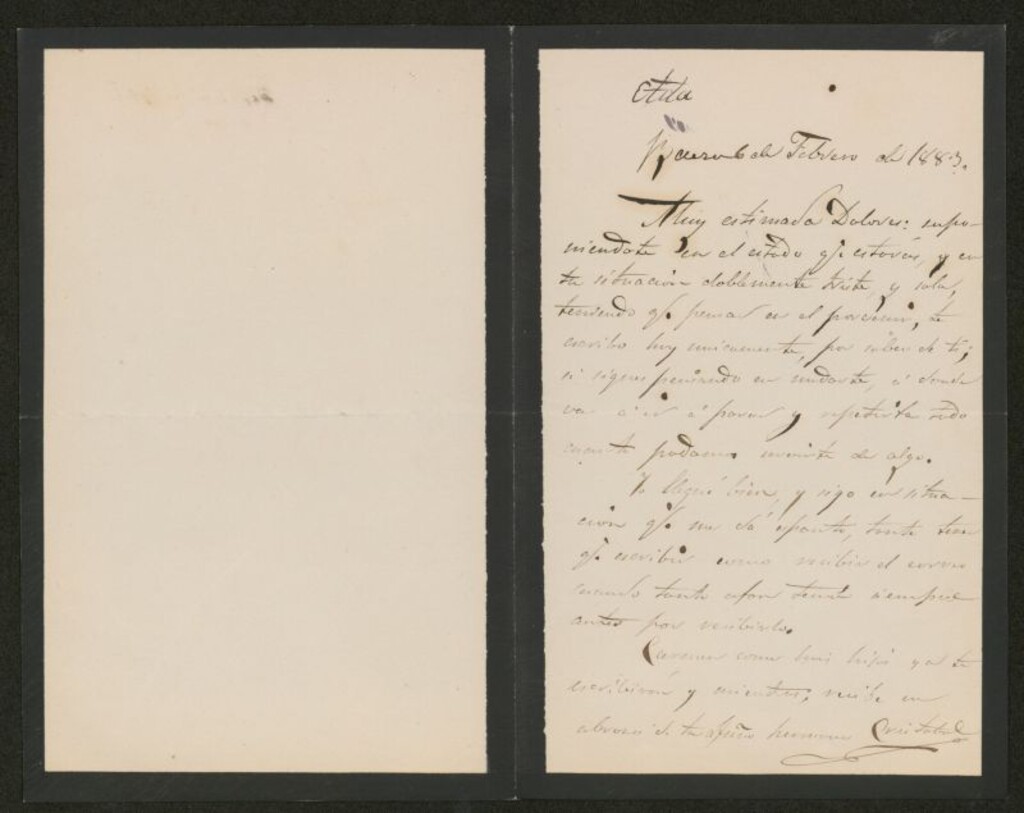 6 de Febrero de 1883.
Muy estimada Dolores: supo-
niendote en el estado qe. estarás, y en
tu situación doblemente triste, y sola,
teniendo qe. pensar en el porvenir, te
escribo hoy unicamente, por saber de ti;
si sigues pensando en mudarte, á donde
vas á ir á parar y repetirte todo
cuanto podamos servirte de algo.
Yo llegué bien, y sigo en situa-
ción qe. me dá espanto, tanto tener
qe. escribir como recibir el correo
cuando tanto afan tenia siempre
antes por recibirlo.
como tus hijos ya te
escribirán y mientras, recibe un
abrazo de tu afmo hermano Cristobal